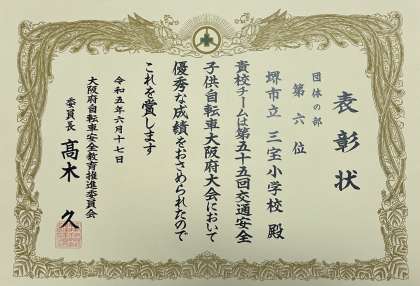 表彰状
団体の部
第六位
堺市立 三宝小学校 殿
貴校チームは第五十五回交通安全
子供自転車大阪府大会において
優秀な成績をおさめられたので
これを賞します
令和五年六月十七日
大阪府自転車安全教育推進委員会
委員長 高木 久